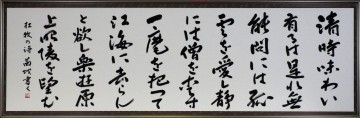 清時味わい
有るは是れ無
能閑には孤
雲を愛し静
には僧を愛す
一麾を把って
江海に去らん
と欲し楽遊原
上昭陵を望む
杜牧の詩